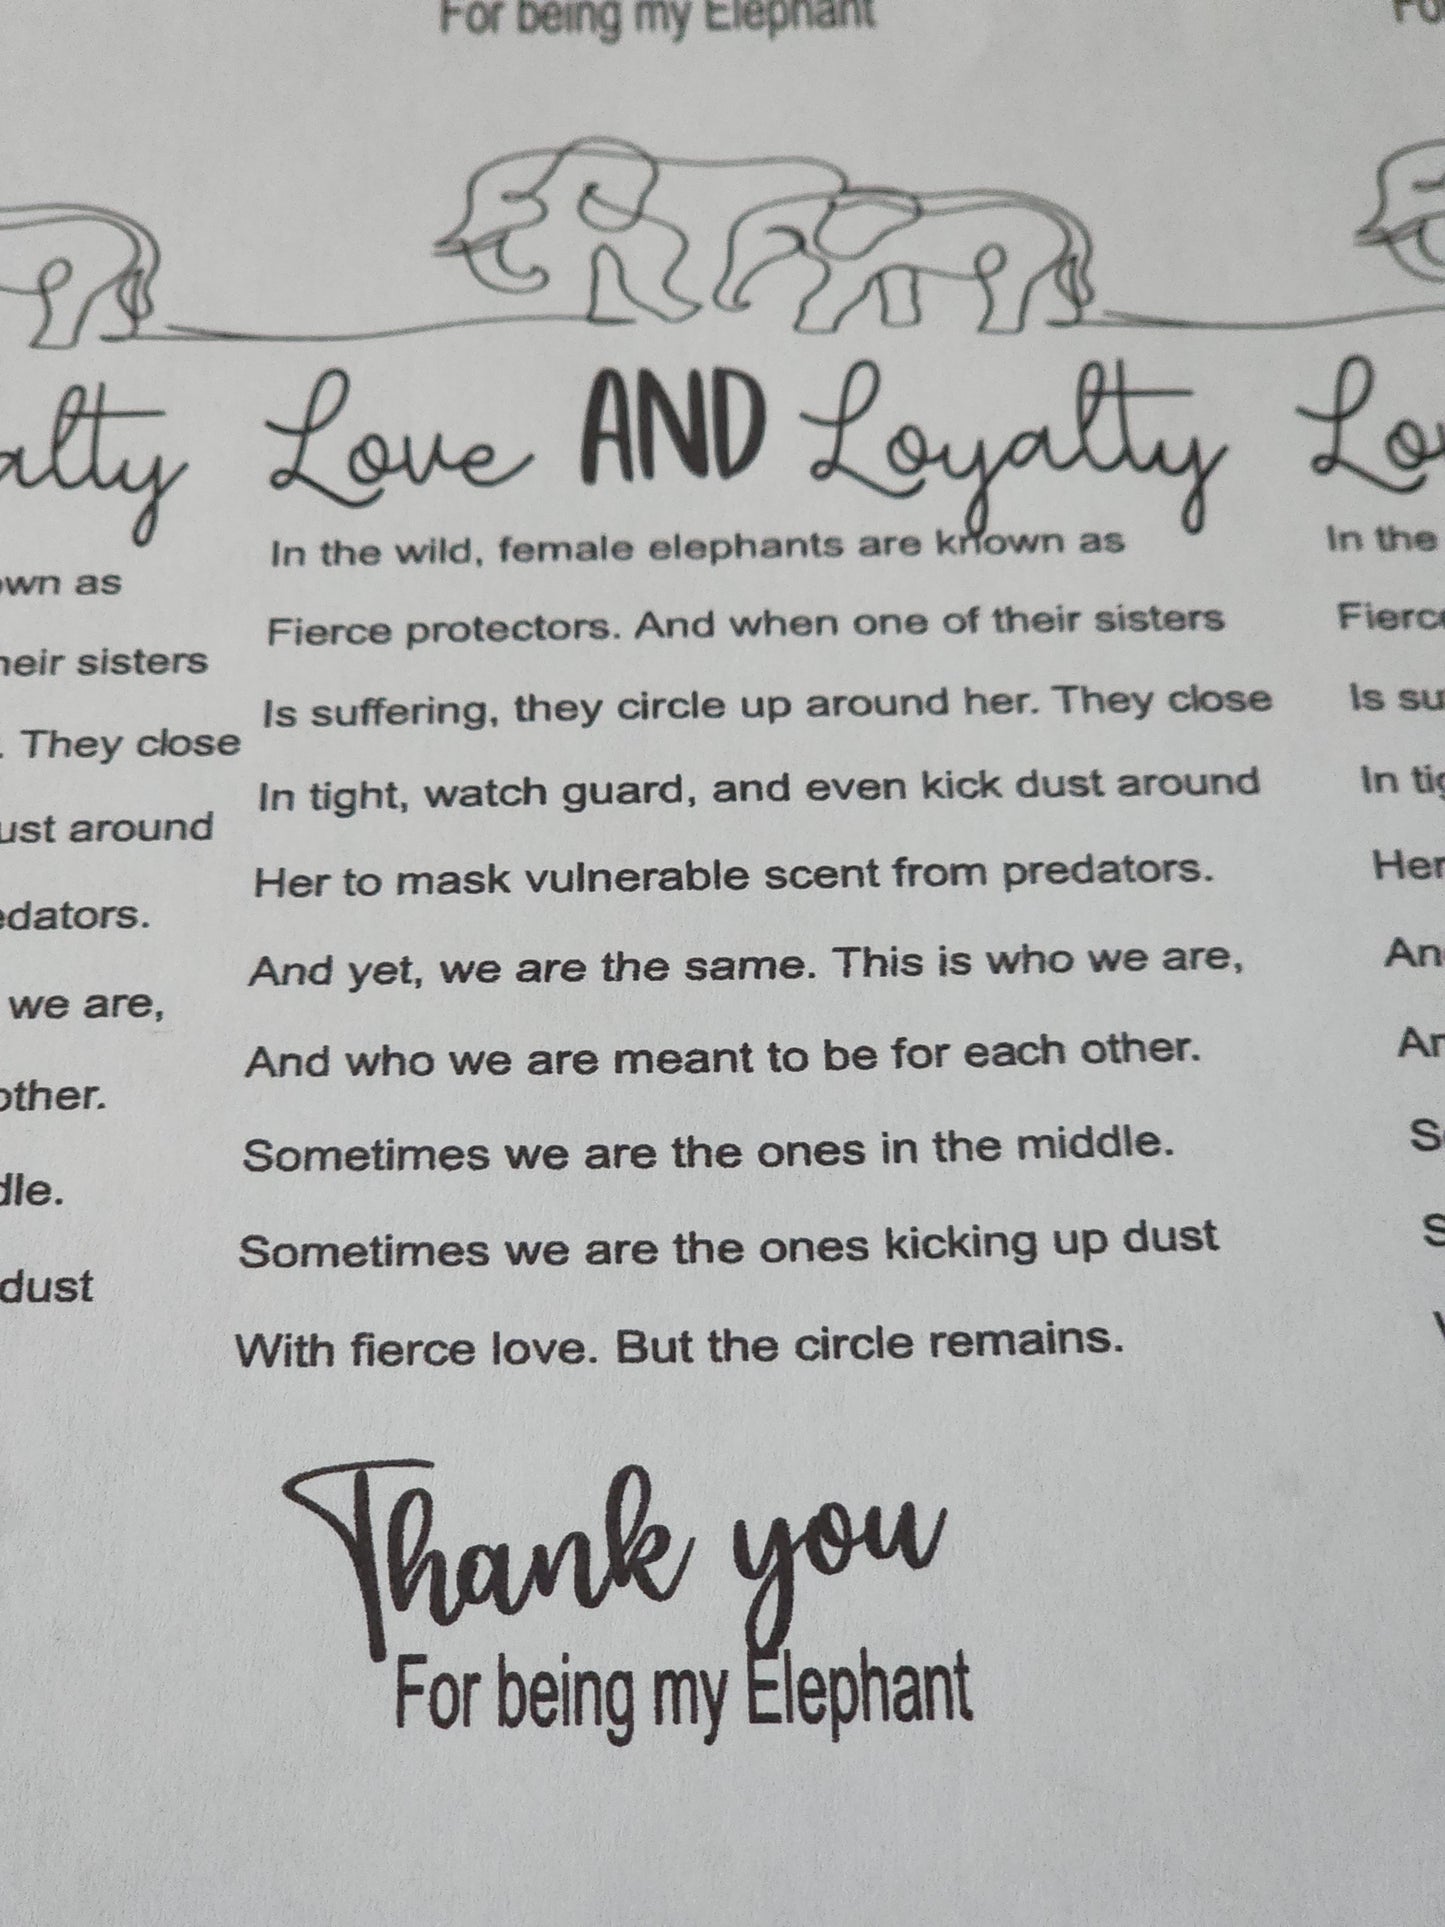 For being my Elephant
Love AND Loyalty
In the wild, female elephants are known as
Fierce protectors. And when one of their sisters
Is suffering, they circle up around her. They close
In tight, watch guard, and even kick dust around
Her to mask vulnerable scent from predators.
And yet, we are the same. This is who we are,
And who we are meant to be for each other.
Sometimes we are the ones in the middle.
Sometimes we are the ones kicking up dust
With fierce love. But the circle remains.
Thank you
For being my Elephant
as
sisters
They close
around
we are,
dust
In the
Is
In
Her